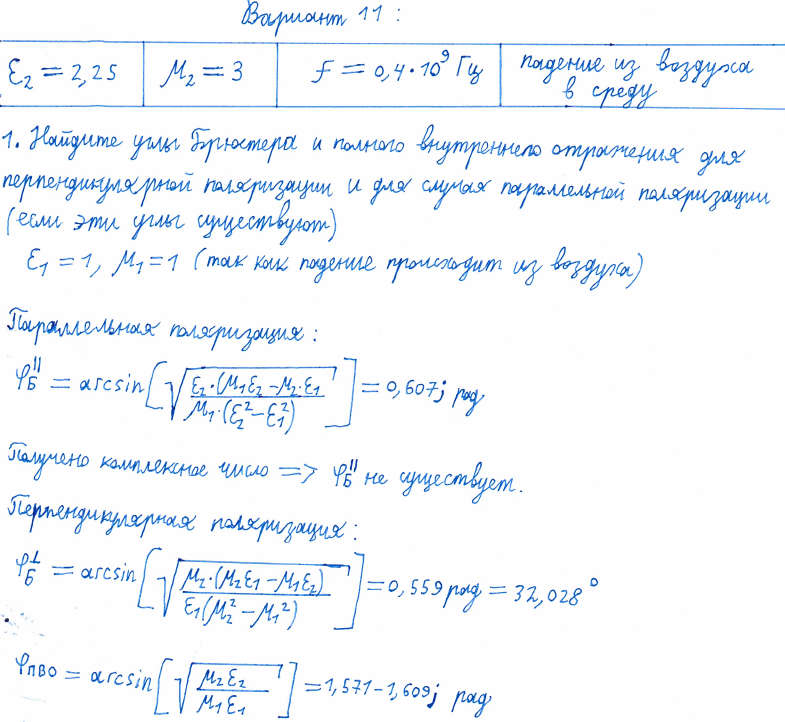 Вариант 11 :
ε₂ = 2,25 | μ₂ = 3 | f = 0,4·10⁹ Гц | падение из воздуха в среду
1. Найдите углы Брюстера и полного внутреннего отражения для
перпендикулярной поляризации и для случая параллельной поляризации
(если эти углы существуют)
ε₁ = 1, μ₁ = 1 (так как падение происходит из воздуха)
Параллельная поляризация :
φ_Б^|| = arcsin[√(ε₂·(μ₁ε₂ − μ₂·ε₁) / μ₁·(ε₂² − ε₁²))] = 0,607j рад
Получено комплексное число => φ_Б^|| не существует.
Перпендикулярная поляризация :
φ_Б^⊥ = arcsin[√(μ₂·(μ₂ε₁ − μ₁ε₂) / ε₁(μ₂² − μ₁²))] = 0,559 рад = 32,028°
φ_ПВО = arcsin[√(μ₂ε₂ / μ₁ε₁)] = 1,571 − 1,609j рад